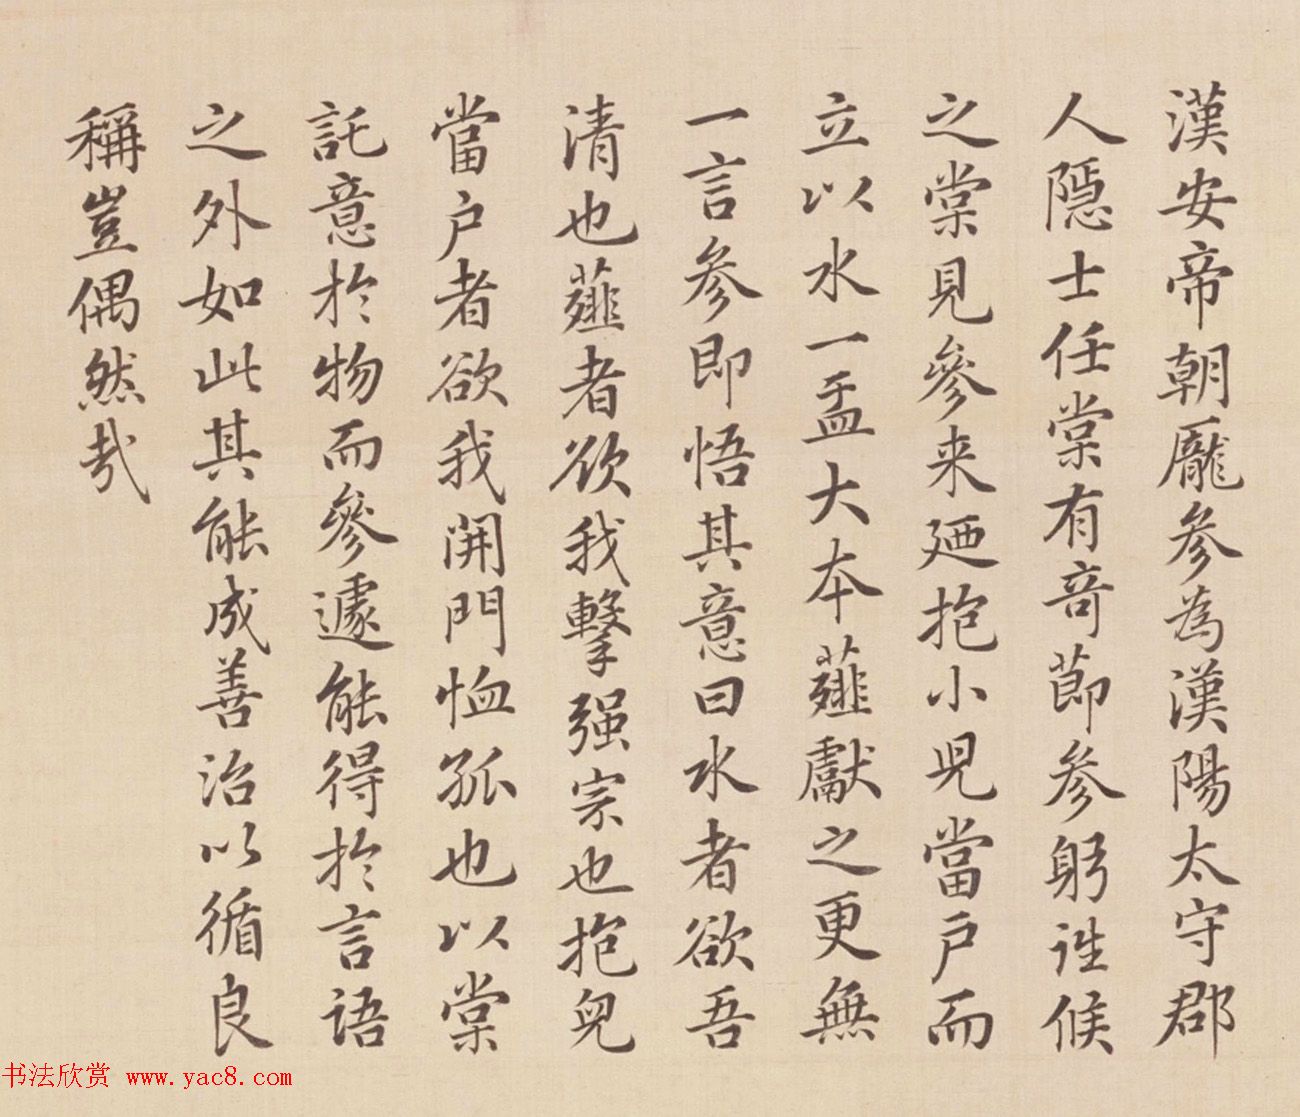 漢安帝朝龐參為漢陽太守郡
人隱士任棠有奇節參躬詣候
之棠見參来廼抱小兒當戶而
立以水一盂大本薤獻之更無
一言參即悟其意曰水者欲吾
清也薤者欲我擊强宗也抱兒
當戶者欲我開門恤孤也以棠
託意於物而參遽能得於言語
之外如此其能成善治以循良
稱豈偶然哉
书法欣赏 www.yac8.com